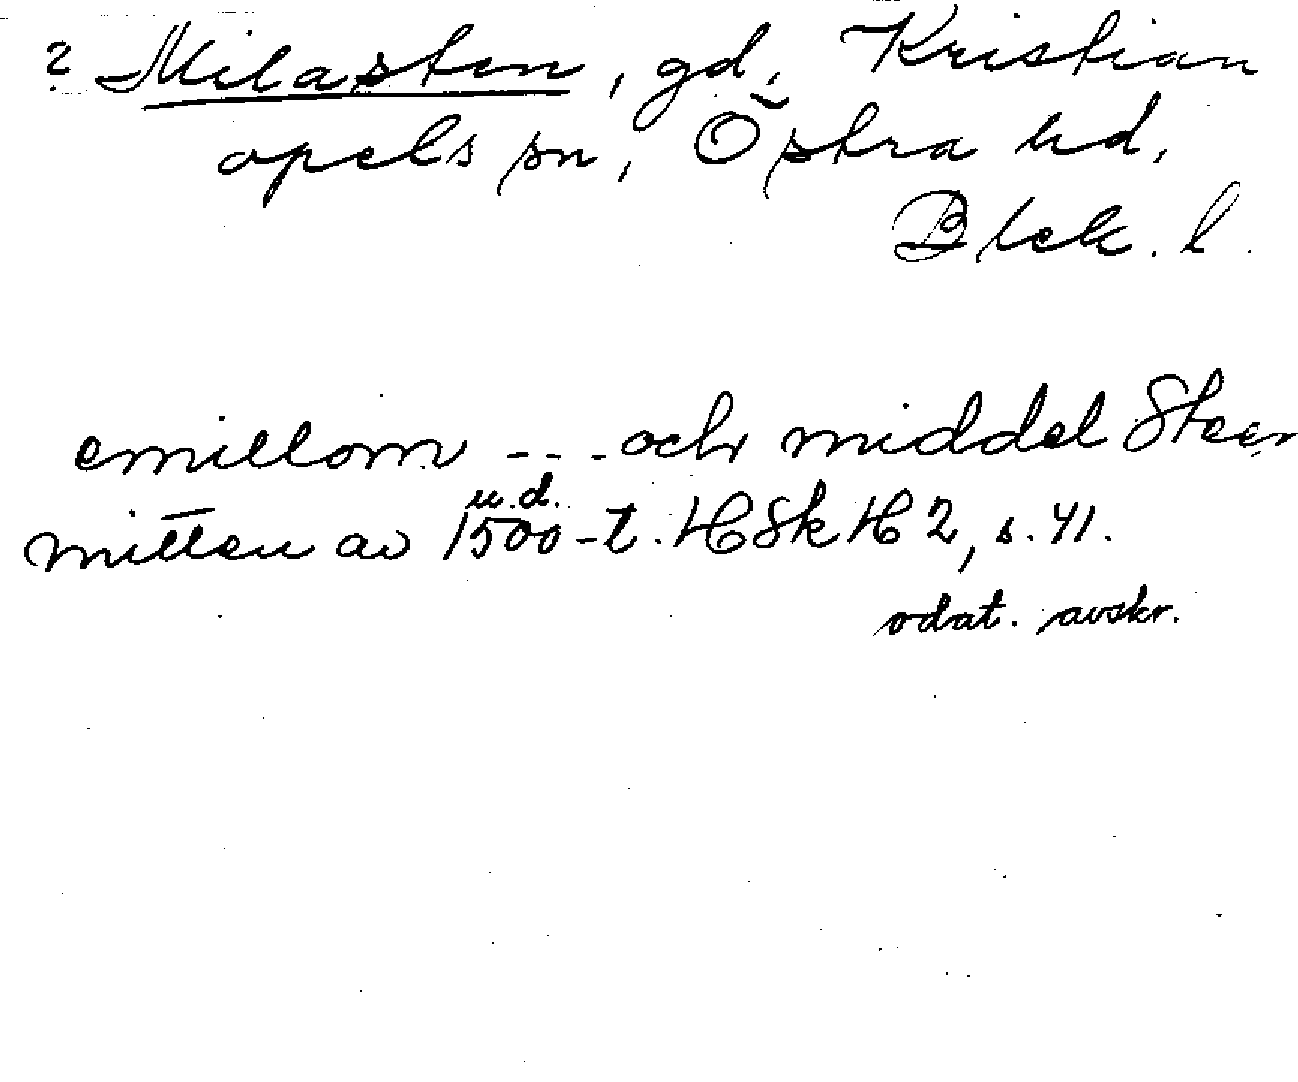 ? Milasten, gd, Kristian
opels sn, Östra hd,
Blek. l.
emillom --- och middel Steen
u.d.
mitten av 1500-t. HSk H 2, s. 41.
odat. avskr.